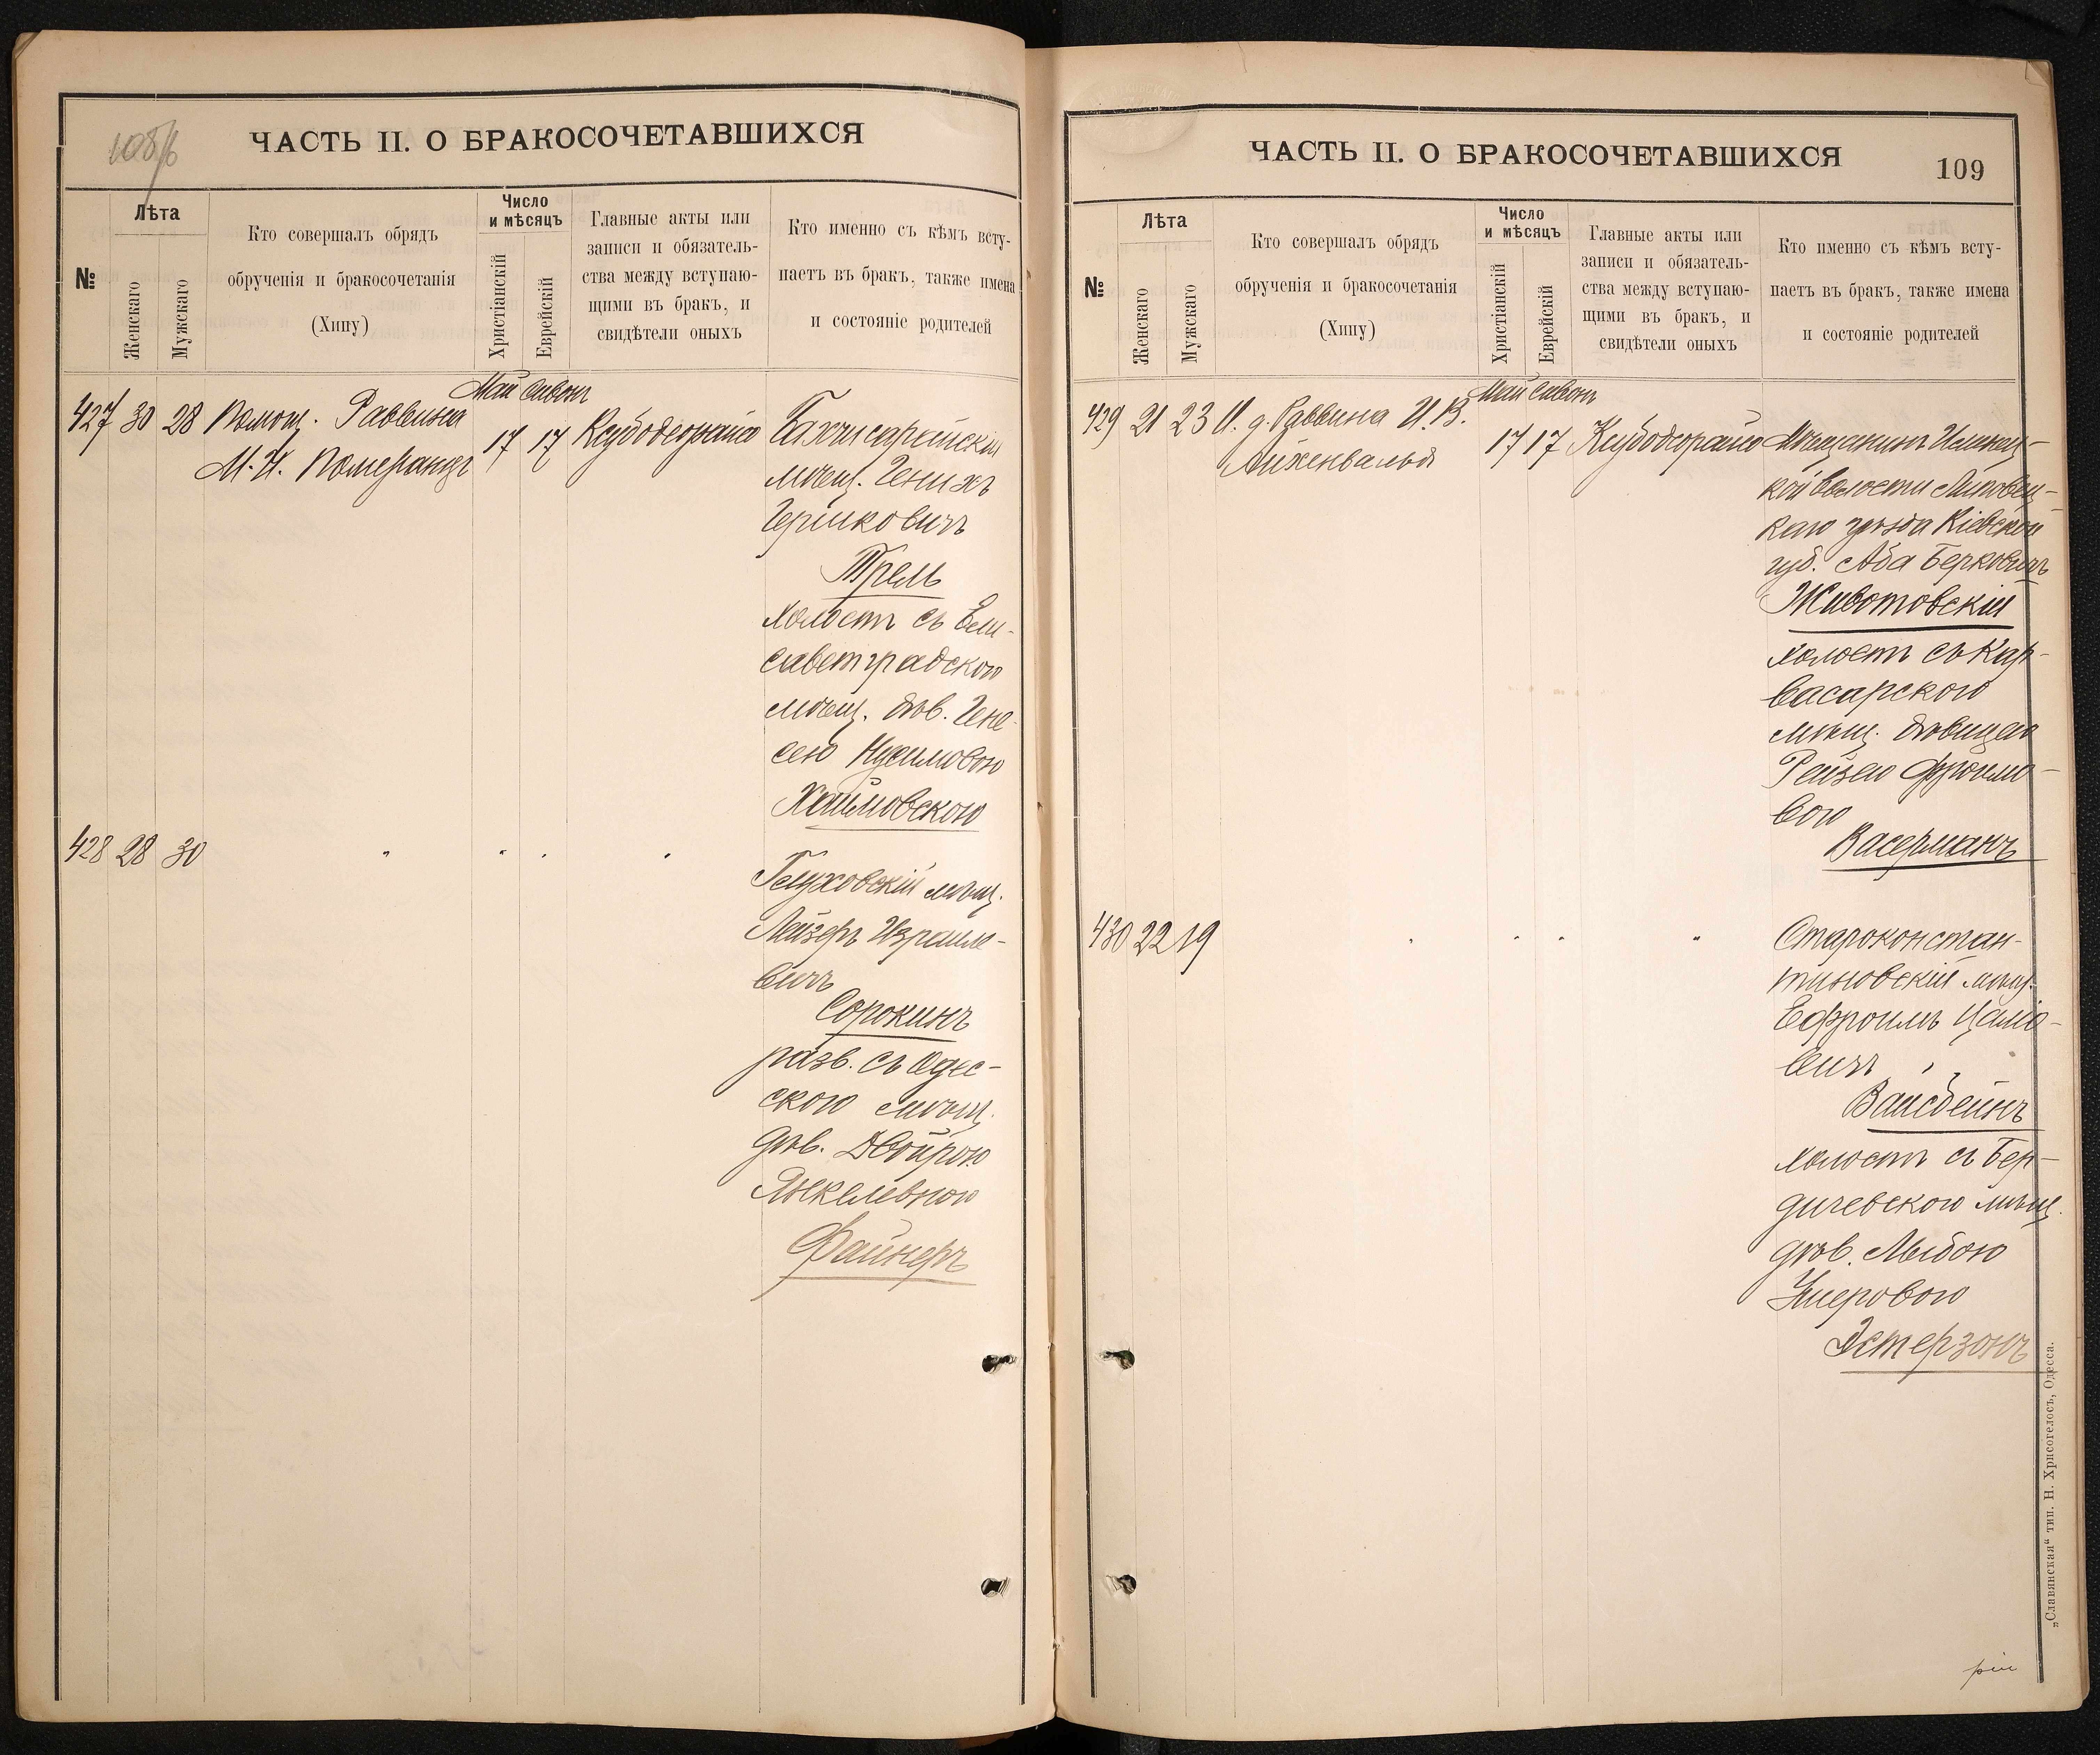 108/б
ЧАСТЬ II. О БРАКОСОЧЕТАВШИХСЯ
№
Лѣта
Женскаго
Мужскаго
Кто совершалъ обрядъ
обрученія и бракосочетанія
(Хипу)
Число
и мѣсяцъ
Христіанскій
Еврейскій
Главные акты или
записи и обязатель-
ства между вступаю-
щими въ бракъ, и
свидѣтели оныхъ
Кто именно съ кѣмъ всту-
паетъ въ бракъ, также имена
и состояніе родителей
427 30 28
Помощ. Раввина
М. Н. Померанцъ
Май Сивон
17 17
Бахчисарейскій
мѣщ. Генихъ
Гершковичъ
Трель
холост съ Ели-
саветградскою
мѣщ. дѣв. Гене-
сею Нусимовою
Хаймовскою
428 28 30
" " " "
Глуховскій мѣщ.
Лейзеръ Израиле-
вичъ
Сорокинъ
разв. съ Одес-
скою мѣщ.
дѣв. Двойрою
Янкелевною
Файнеръ
ЧАСТЬ II. О БРАКОСОЧЕТАВШИХСЯ
109
№
Лѣта
Женскаго
Мужскаго
Кто совершалъ обрядъ
обрученія и бракосочетанія
(Хипу)
Число
и мѣсяцъ
Христіанскій
Еврейскій
Главные акты или
записи и обязатель-
ства между вступаю-
щими въ бракъ, и
свидѣтели оныхъ
Кто именно съ кѣмъ всту-
паетъ въ бракъ, также имена
и состояніе родителей
429 21 23
И. д. Раввина И. В.
Айхенвальд
Май Сивон
17 17
Мѣщанинъ
кой волости Липовец-
каго уѣзда Кіевской
губ. Аба Берковичъ
Животовскій
холостъ съ Кар-
васарскою
мѣщ. дѣвицею
Рейзею Фроимо-
вою
Васерманъ
430 22 19
" " " "
Староконстан-
тиновскій мѣщ.
Ефроимъ Цалiо-
вичъ
Вайсбейнъ
холостъ съ Бер-
дичевскою мѣщ.
дѣв. Лыбою
Эстерзонъ
„Славянская" тип. Н. Хрисогелосъ, Одесса.